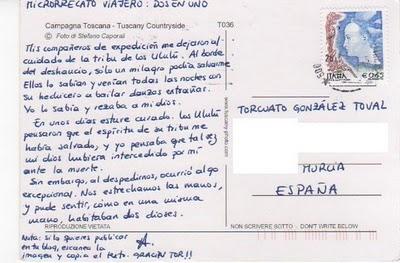 MICRORRELATO VIAJERO: DOS EN UNO
Campagna Toscana - Tuscany Countryside
T036
© Foto di Stefano Caporali
Mis compañeros de expedición me dejaron al
cuidado de la tribu de los Ululú. Al borde
del deshaucio, sólo un milagro podía salvarme
Ellos lo sabían y venían todas las noches con
su hechicero a bailar danzas extrañas.
Yo lo sabía y rezaba a mi dios.
En unos días estuve curado. Los Ululú
pensaron que el espíritu de su tribu me
había salvado, y yo pensaba que tal vez
mi dios hubiera intercedido por mí
ante la muerte.
Sin embargo, al despedirnos, ocurrió algo
excepcional. Nos estrechamos las manos,
y pude sentir, cómo en una misma
mano, habitaban dos dioses.
RIPRODUZIONE VIETATA
Nota: si lo quieres publicar
en tu blog, escanea la
imagen y copia el texto. GRACIAS TOR!!
A.
www.tuscany-photo.com
ITALIA
€ 0,65
TORCUATO GONZÁLEZ TOVAL
MURCIA
ESPAÑA
NON SCRIVERE SOTTO DON'T WRITE BELOW